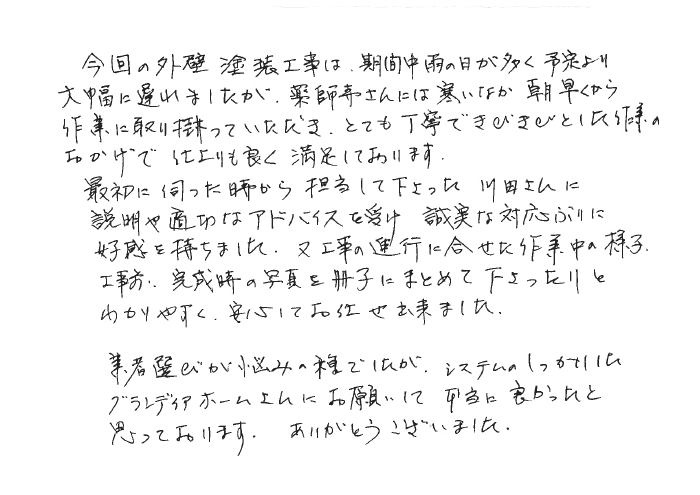 今回の外壁 塗装工事は、期間中雨の日が多く 予定より
大幅に遅れましたが、薬師寺さんには寒いなか 朝早くから
作業に取り掛っていただき、とても丁寧できびきびとした作業の
おかげで 仕上りも良く 満足しております。
最初に伺った時から 担当して下さった 川田さんに
説明や適切なアドバイスを受け 誠実な対応ぶりに
好感を持ちました。又工事の進行に合せた作業中の様子、
工事前、完成時の写真を冊子にまとめて下さったりと
わかりやすく、安心してお任せ出来ました。
業者選びが悩みの種でしたが、システムのしっかりした
グランディアホームさんにお願いして 本当に良かったと
思っております。 ありがとうございました。